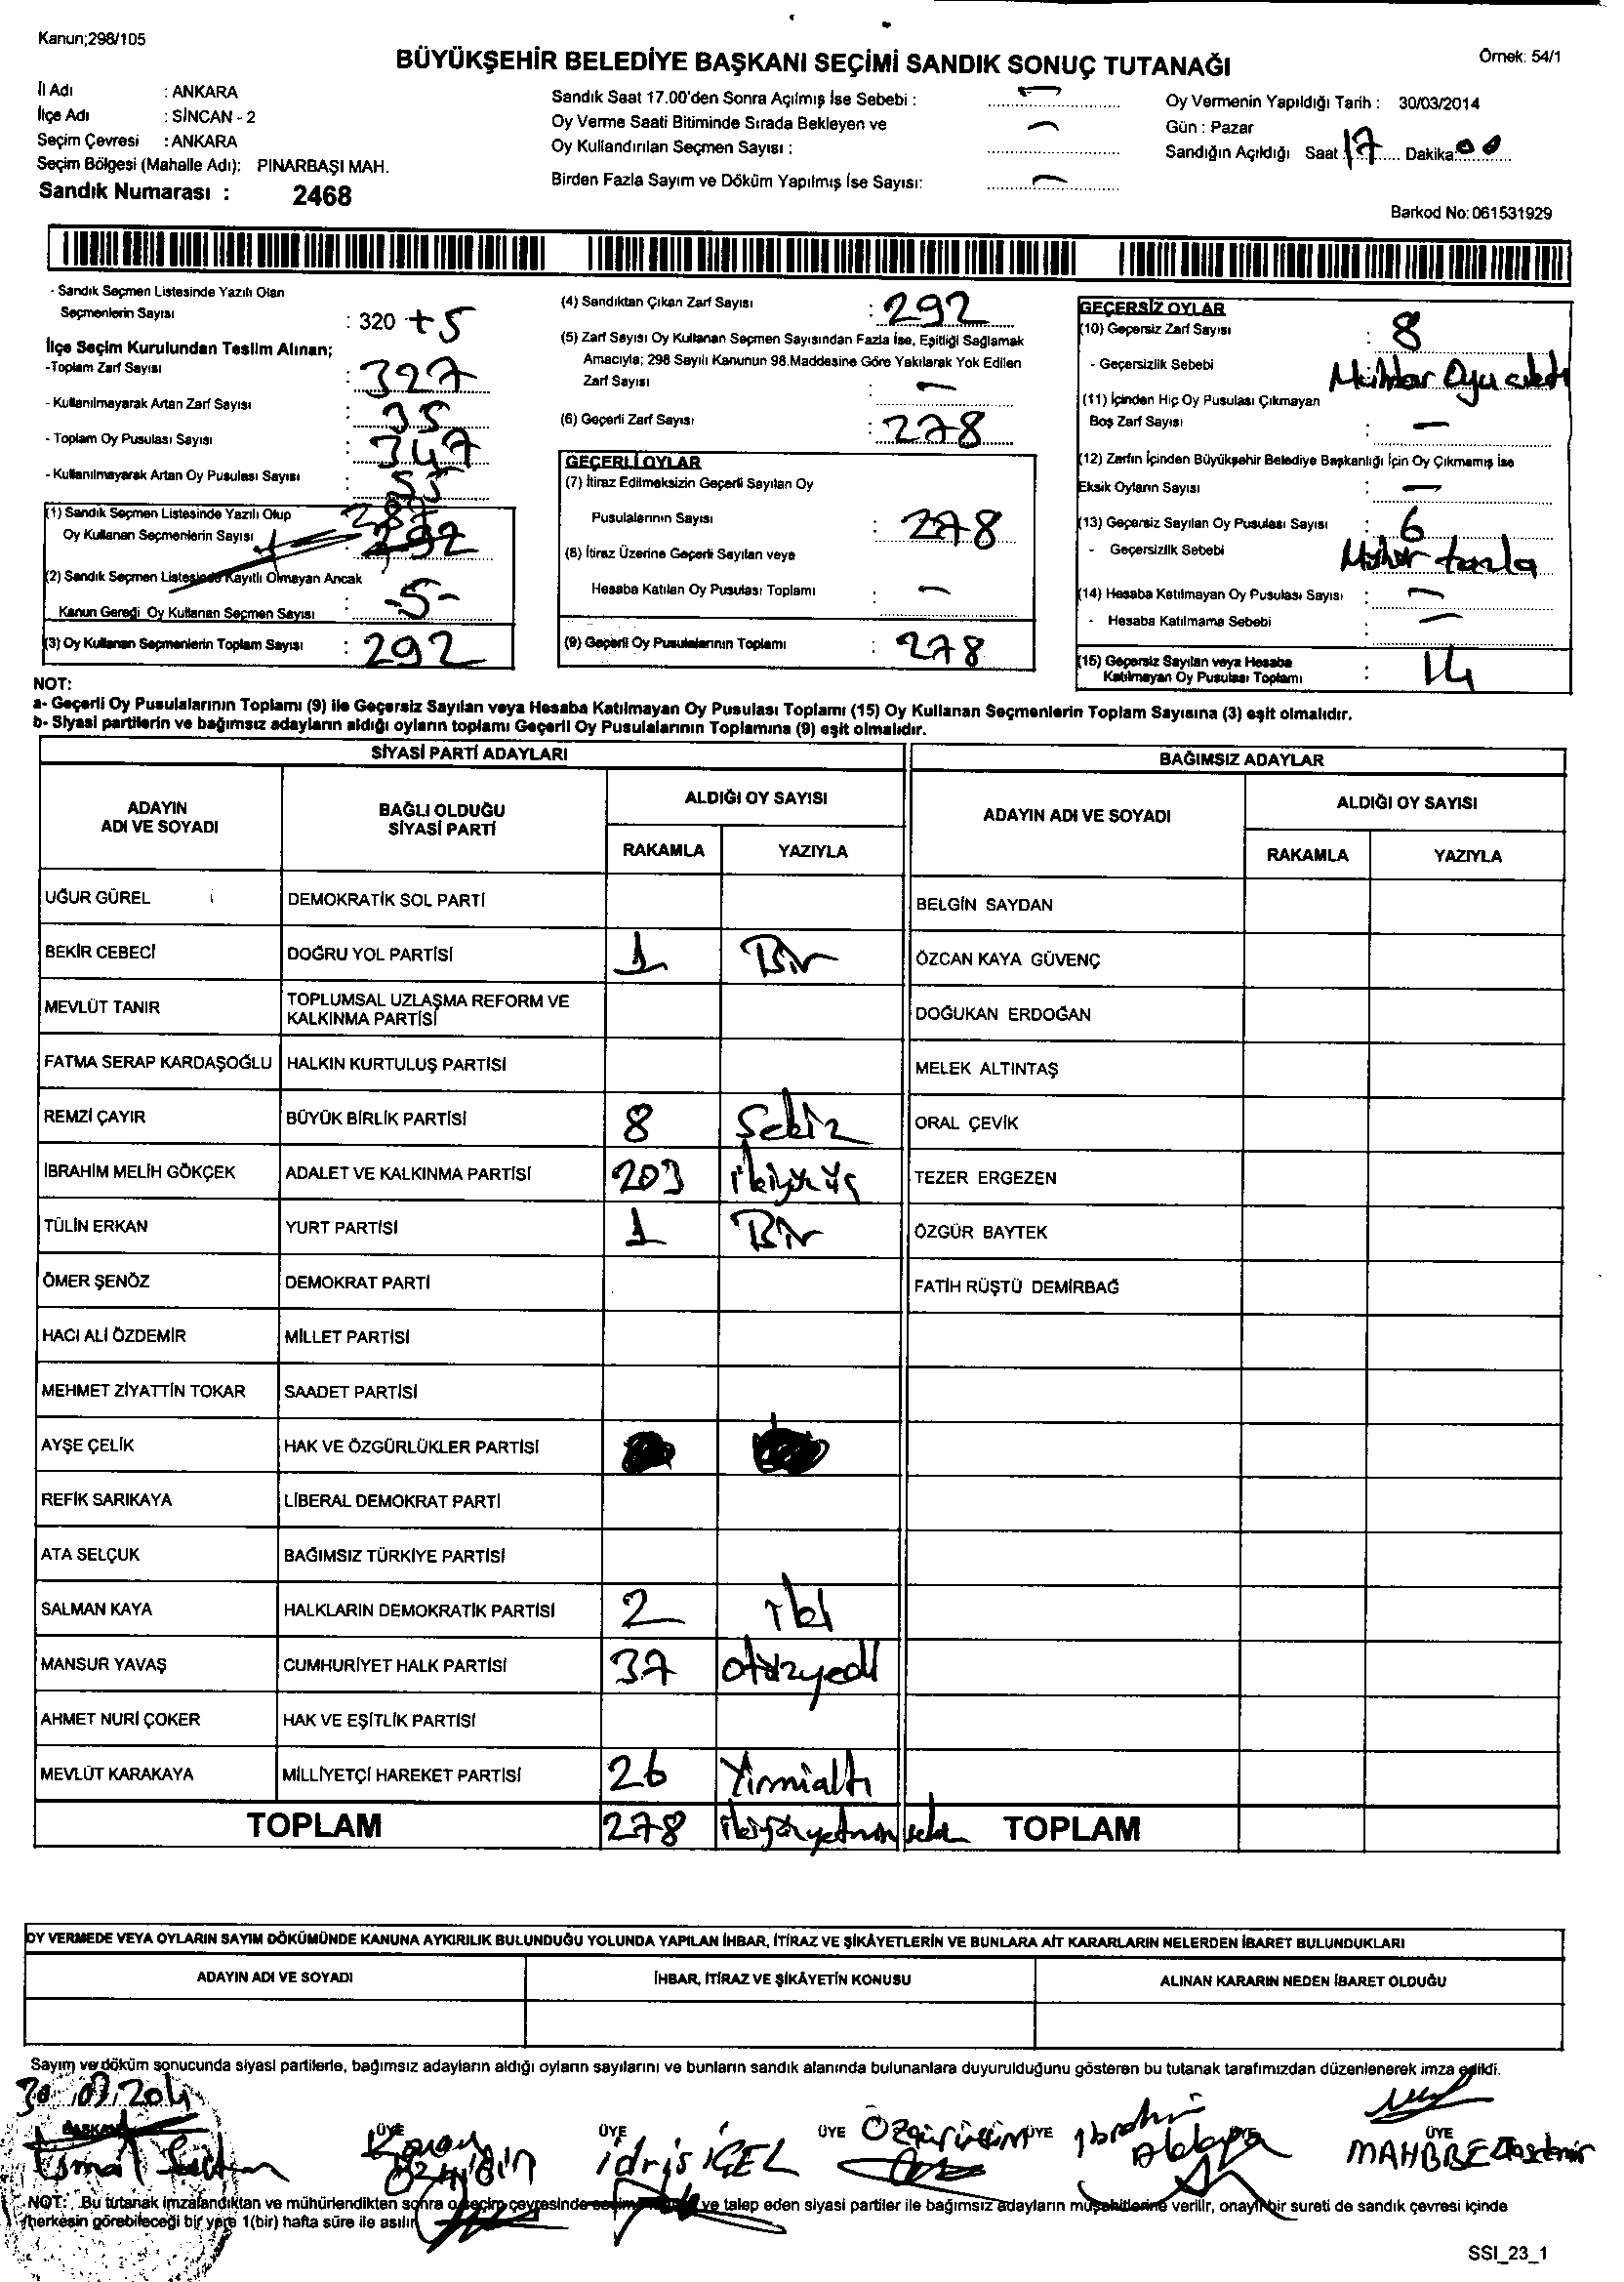 Kanun;298/105
Örnek: 54/1
BÜYÜKŞEHİR BELEDİYE BAŞKANI SEÇİMİ SANDIK SONUÇ TUTANAĞI
İl Adı : ANKARA
İlçe Adı : SİNCAN - 2
Seçim Çevresi : ANKARA
Seçim Bölgesi (Mahalle Adı): PINARBAŞI MAH.
Sandık Numarası : 2468
Sandık Saat 17.00'den Sonra Açılmış İse Sebebi : —
Oy Verme Saati Bitiminde Sırada Bekleyen ve
Oy Kullandırılan Seçmen Sayısı : —
Birden Fazla Sayım ve Döküm Yapılmış İse Sayısı: —
Oy Vermenin Yapıldığı Tarih : 30/03/2014
Gün : Pazar
Sandığın Açıldığı Saat 17 Dakika 00
Barkod No: 061531929
- Sandık Seçmen Listesinde Yazılı Olan
Seçmenlerin Sayısı : 320 +5
İlçe Seçim Kurulundan Teslim Alınan;
-Toplam Zarf Sayısı : 327
- Kullanılmayarak Artan Zarf Sayısı : 35
- Toplam Oy Pusulası Sayısı : 347
- Kullanılmayarak Artan Oy Pusulası Sayısı : 55
(1) Sandık Seçmen Listesinde Yazılı Olup
Oy Kullanan Seçmenlerin Sayısı : 287
(2) Sandık Seçmen Listesinde Kayıtlı Olmayan Ancak
Kanun Gereği Oy Kullanan Seçmen Sayısı : -5-
(3) Oy Kullanan Seçmenlerin Toplam Sayısı : 292
(4) Sandıktan Çıkan Zarf Sayısı : 292
(5) Zarf Sayısı Oy Kullanan Seçmen Sayısından Fazla İse, Eşitliği Sağlamak
Amacıyla; 298 Sayılı Kanunun 98.Maddesine Göre Yakılarak Yok Edilen
Zarf Sayısı : —
(6) Geçerli Zarf Sayısı : 278
GEÇERLİ OYLAR
(7) İtiraz Edilmeksizin Geçerli Sayılan Oy
Pusulalarının Sayısı : 278
(8) İtiraz Üzerine Geçerli Sayılan veya
Hesaba Katılan Oy Pusulası Toplamı : —
(9) Geçerli Oy Pusulalarının Toplamı : 278
GEÇERSİZ OYLAR
(10) Geçersiz Zarf Sayısı : 8
- Geçersizlik Sebebi Mühtar Oyu çıktı
(11) İçinden Hiç Oy Pusulası Çıkmayan
Boş Zarf Sayısı : —
(12) Zarfın İçinden Büyükşehir Belediye Başkanlığı İçin Oy Çıkmamış İse
Eksik Oyların Sayısı : —
(13) Geçersiz Sayılan Oy Pusulası Sayısı : 6
- Geçersizlik Sebebi Mühür fazla
(14) Hesaba Katılmayan Oy Pusulası Sayısı : —
- Hesaba Katılmama Sebebi : —
(15) Geçersiz Sayılan veya Hesaba
Katılmayan Oy Pusulası Toplamı : 14
NOT:
a- Geçerli Oy Pusulalarının Toplamı (9) ile Geçersiz Sayılan veya Hesaba Katılmayan Oy Pusulası Toplamı (15) Oy Kullanan Seçmenlerin Toplam Sayısına (3) eşit olmalıdır.
b- Siyasi partilerin ve bağımsız adayların aldığı oyların toplamı Geçerli Oy Pusulalarının Toplamına (9) eşit olmalıdır.
SİYASİ PARTİ ADAYLARI
ADAYIN ADI VE SOYADI BAĞLI OLDUĞU SİYASİ PARTİ ALDIĞI OY SAYISI
RAKAMLA YAZIYLA
UĞUR GÜREL DEMOKRATİK SOL PARTİ
BEKİR CEBECİ DOĞRU YOL PARTİSİ 1 Bir
MEVLÜT TANIR TOPLUMSAL UZLAŞMA REFORM VE KALKINMA PARTİSİ
FATMA SERAP KARDAŞOĞLU HALKIN KURTULUŞ PARTİSİ
REMZİ ÇAYIR BÜYÜK BİRLİK PARTİSİ 8 Sekiz
İBRAHİM MELİH GÖKÇEK ADALET VE KALKINMA PARTİSİ 203 ikiyüzüç
TÜLİN ERKAN YURT PARTİSİ 1 Bir
ÖMER ŞENÖZ DEMOKRAT PARTİ
HACI ALİ ÖZDEMİR MİLLET PARTİSİ
MEHMET ZİYATTİN TOKAR SAADET PARTİSİ
AYŞE ÇELİK HAK VE ÖZGÜRLÜKLER PARTİSİ
REFİK SARIKAYA LİBERAL DEMOKRAT PARTİ
ATA SELÇUK BAĞIMSIZ TÜRKİYE PARTİSİ
SALMAN KAYA HALKLARIN DEMOKRATİK PARTİSİ 2 iki
MANSUR YAVAŞ CUMHURİYET HALK PARTİSİ 37 otuzyedi
AHMET NURİ ÇOKER HAK VE EŞİTLİK PARTİSİ
MEVLÜT KARAKAYA MİLLİYETÇİ HAREKET PARTİSİ 26 Yirmialtı
TOPLAM 278 ikiyüzyetmişsekiz
BAĞIMSIZ ADAYLAR
ADAYIN ADI VE SOYADI ALDIĞI OY SAYISI
RAKAMLA YAZIYLA
BELGİN SAYDAN
ÖZCAN KAYA GÜVENÇ
DOĞUKAN ERDOĞAN
MELEK ALTINTAŞ
ORAL ÇEVİK
TEZER ERGEZEN
ÖZGÜR BAYTEK
FATİH RÜŞTÜ DEMİRBAĞ
TOPLAM
OY VERMEDE VEYA OYLARIN SAYIM DÖKÜMÜNDE KANUNA AYKIRILIK BULUNDUĞU YOLUNDA YAPILAN İHBAR, İTİRAZ VE ŞİKÂYETLERİN VE BUNLARA AİT KARARLARIN NELERDEN İBARET BULUNDUKLARI
ADAYIN ADI VE SOYADI İHBAR, İTİRAZ VE ŞİKÂYETİN KONUSU ALINAN KARARIN NEDEN İBARET OLDUĞU
Sayım ve döküm sonucunda siyasi partilerle, bağımsız adayların aldığı oyların sayılarını ve bunların sandık alanında bulunanlara duyurulduğunu gösteren bu tutanak tarafımızdan düzenlenerek imza edildi.
30.03.2014
BAŞKAN ÜYE ÜYE ÜYE ÜYE ÜYE
İdris İGEL
NOT: Bu tutanak imzalandıktan ve mühürlendikten sonra o seçim çevresinde ve talep eden siyasi partiler ile bağımsız adayların müşahitlerine verilir, onaylı bir sureti de sandık çevresi içinde
herkesin görebileceği bir yere 1(bir) hafta süre ile asılır
SSI_23_1